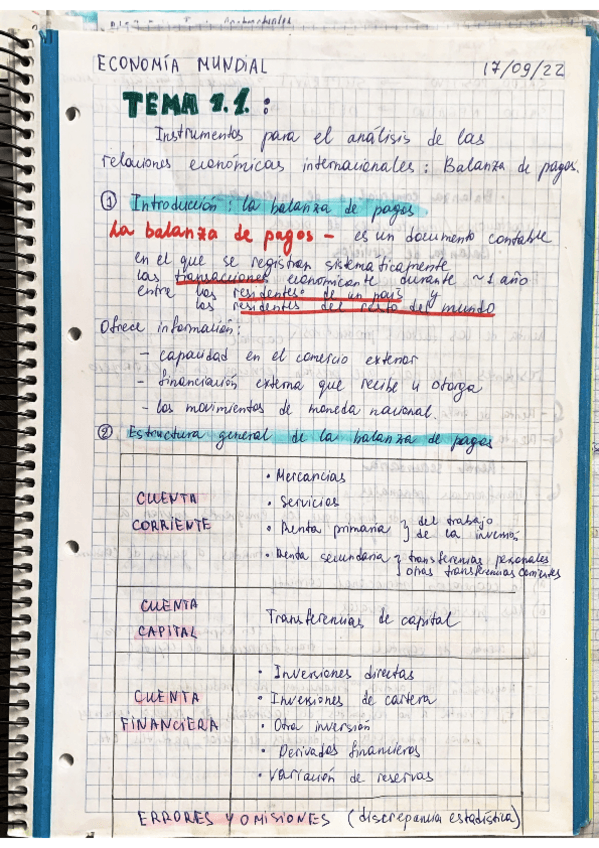 ECONOMÍA MUNDIAL 17/09/22
TEMA 1.1.:
Instrumentos para el análisis de las
relaciones económicas internacionales: Balanza de pagos.
① Introducción: la balanza de pagos
La balanza de pagos – es un documento contable
en el que se registran sistemáticamente
las transacciones economicante durante ~1 año
entre los residentes de un país y
los residentes del resto del mundo
Ofrece información:
– capacidad en el comercio exterior
– financiación externa que recibe u otorga
– los movimientos de moneda nacional.
② Estructura general de la balanza de pagos
CUENTA CORRIENTE
• Mercancías
• Servicios
• Renta primaria } del trabajo
de la inversión
• Renta secundaria } transferencias personales
otras transferencias corrientes
CUENTA CAPITAL
Transferencias de capital
CUENTA FINANCIERA
• Inversiones directas
• Inversiones de cartera
• Otra inversión
• Derivados financieros
• Variación de reservas
ERRORES Y OMISIONES (discrepancia estadística)